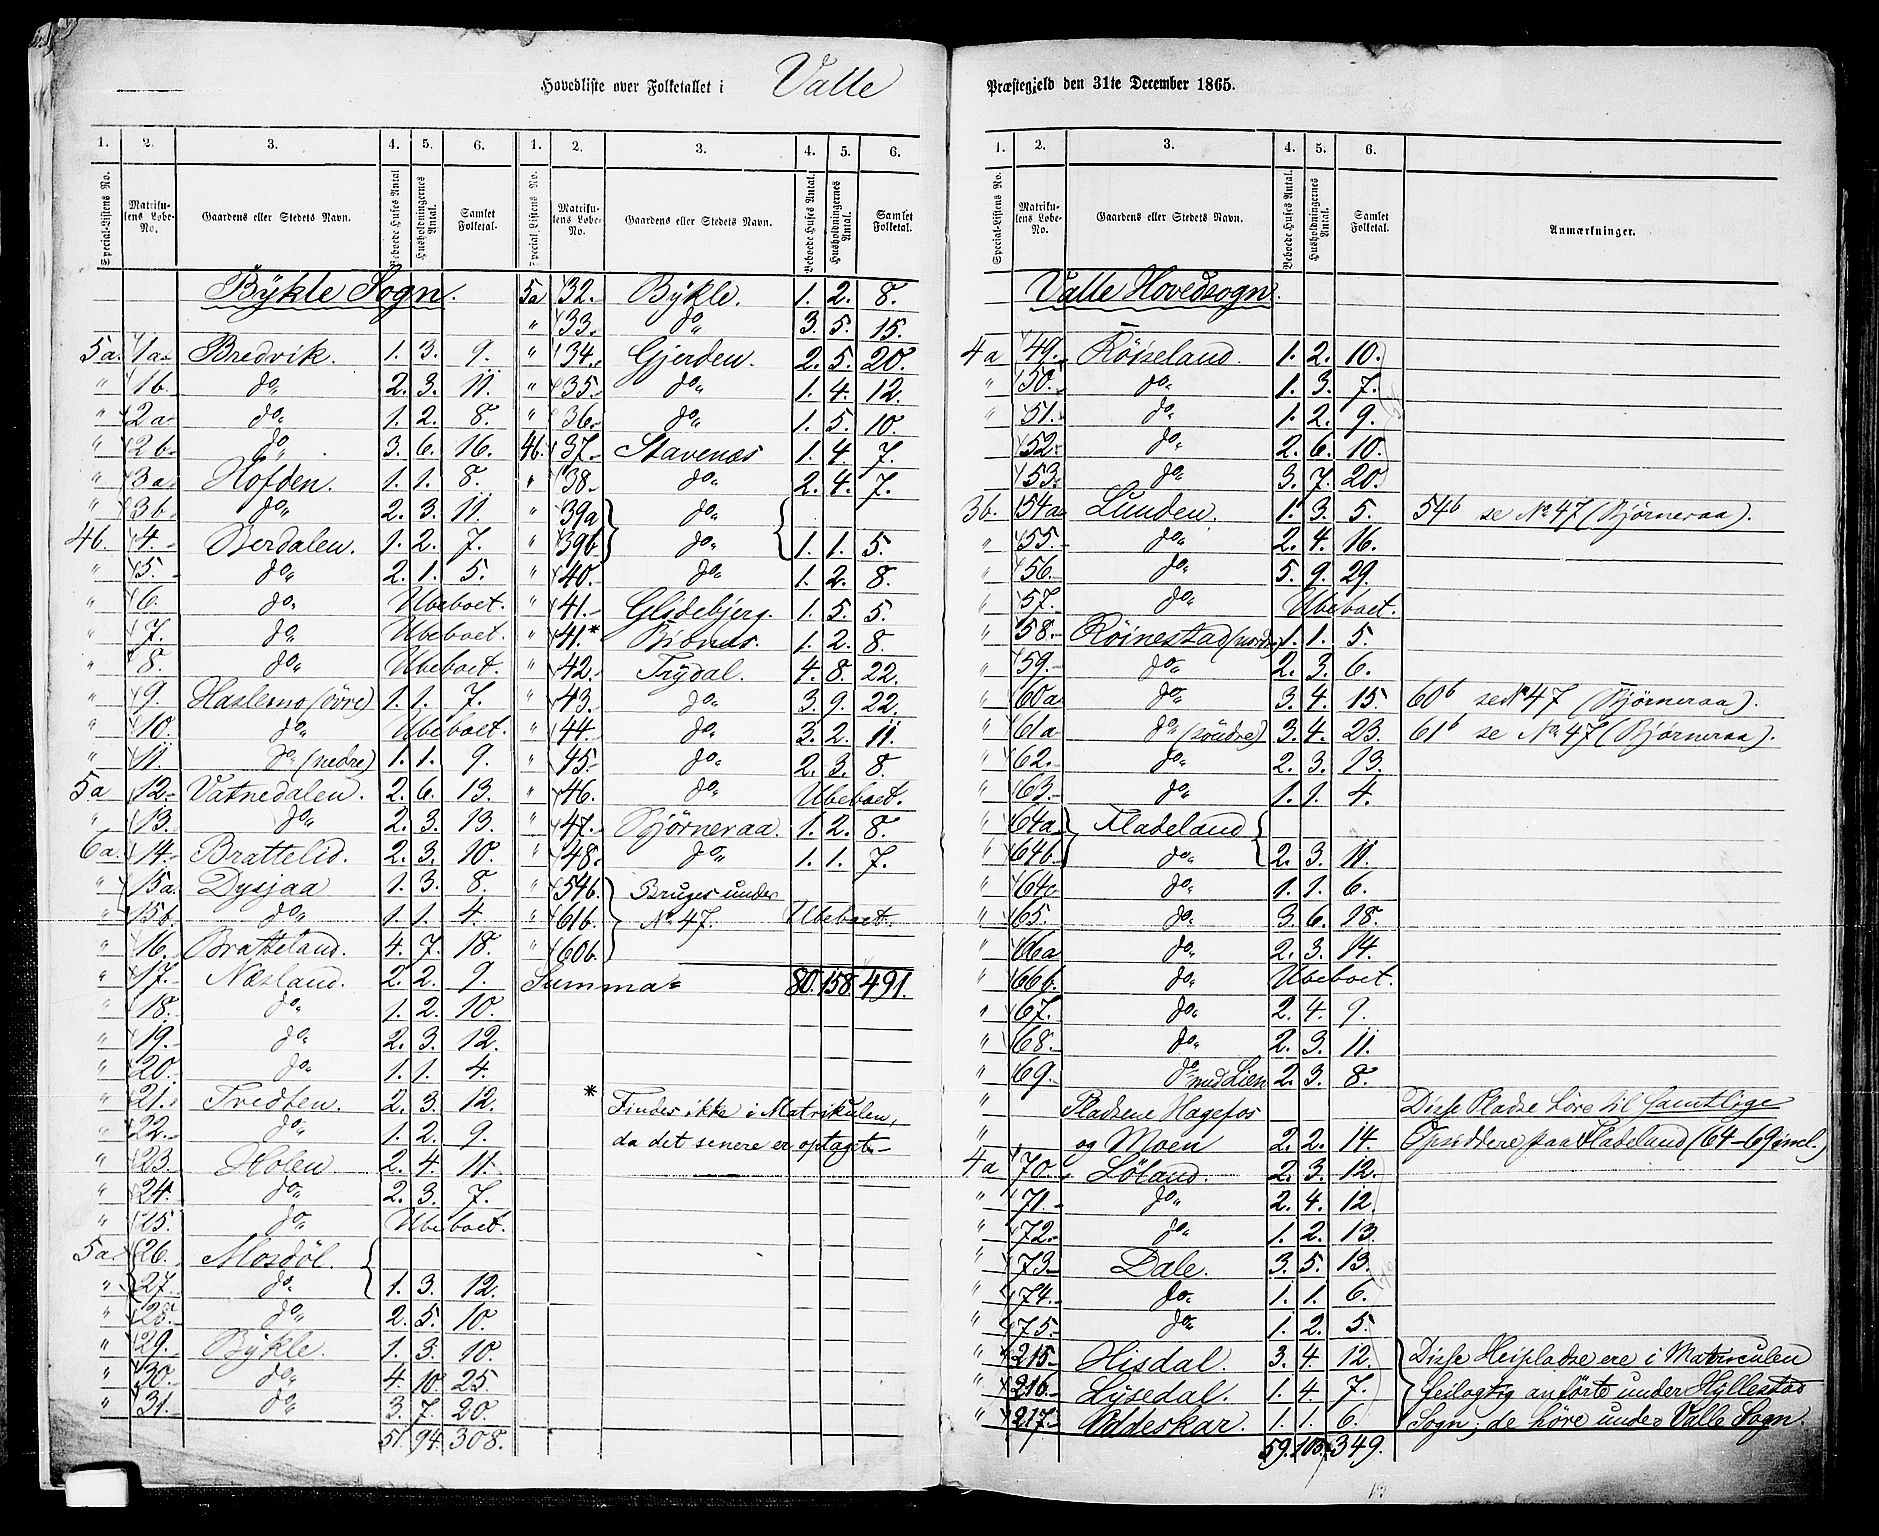 Hovedliste over Folketallet i Valle
1. 2. 3. 4. 5. 6. 1. 2. 3. 4. 5. 6.
Special-Listens No. Matrikulens Løbe-No. Gaardens eller Stedets Navn. Beboede Huses Antal Husholdningernes Antal. Samlet Folketal. Special-Listens No. Matrikulens Løbe-No. Gaardens eller Stedets Navn. Beboede Huses Antal. Husholdningernes Antal. Samlet Folketal.
Bykle Sogn.
5a. 1a. Bredvik. 1. 3. 9.
" 1b. do 2. 3. 11.
" 2a. do 1. 2. 8.
" 2b. do 3. 6. 16.
" 3a. Hofden. 1. 1. 8.
" 3b. do 2. 3. 11.
4b. 4. Berdalen. 1. 2. 7.
" 5. do 2. 1. 5.
" 6. do Ubeboet.
" 7. do Ubeboet.
" 8. do Ubeboet.
" 9. Haslemo (övre) 1. 1. 7.
" 10. do Ubeboet.
" 11. do (nedre) 1. 1. 9.
5a 12. Vatnedalen. 2. 6. 13.
" 13. do 2. 3. 13.
6a. 14. Brattelid. 2. 3. 10.
" 15a. Dysjaa 1. 3. 8.
" 15b. do 1. 1. 4.
" 16. Bratteland. 4. 7. 18.
" 17. Næsland. 2. 2. 9.
" 18. do 1. 2. 10.
" 19. do 2. 3. 12.
" 20. do 1. 1. 4.
" 21. Tvedten. 2. 3. 12.
" 22. do 1. 2. 9.
" 23. Holen 2. 4. 11.
" 24. do 2. 3. 7.
" 25. do Ubeboet.
5a. 26. Mosdøl.
" 27. do 1. 3. 12.
" 28. do 2. 5. 10.
" 29. Bykle. 1. 3. 10.
" 30. do 4. 10. 25.
" 31. do 3. 7. 20.
51. 94. 308.
5a 32. Bykle. 1. 2. 8.
" 33. do 3. 5. 15.
" 34. Gjerden. 2. 5. 20.
" 35. do 1. 4. 12.
" 36. do 1. 5. 10.
4b. 37. Stavenæs 1. 4. 7.
" 38. do 2. 4. 7.
" 39a do
" 39b do 1. 1. 5.
" 40. do 1. 2. 8.
" 41. Glidebjerg. 1. 5. 5.
" 41* 1. 2. 8.
" 42. Trydal. 4. 8. 22.
" 43. do 3. 9. 22.
" 44. do 3. 2. 11.
" 45. do 2. 3. 8.
" 46. do Ubeboet.
" 47. Bjørneraa. 1. 2. 8.
" 48. do 1. 1. 7.
" 54b. Bruges under
" 61b. No 47. Ubeboet.
" 60b.
Summa 80. 158 491.
* Findes ikke i Matrikulen,
da det senere er optaget.
Præstegjeld den 31te December 1865.
1. 2. 3. 4. 5. 6.
Special-Listens No. Matrikulens Løbe-No. Gaardens eller Stedets Navn. Beboede Huses Antal. Husholdningernes Antal. Samlet Folketal. Anmærkninger.
Valle Hovedsogn.
4a 49. Röiseland. 1. 2. 10.
" 50. do 1. 3. 7.
" 51. do 1. 2. 9.
" 52. do 2. 6. 10.
" 53. do 3. 7. 20.
3b. 54a Lunden. 1. 3. 5. 54b se No 47 (Bjørneraa).
" 55. do 2. 4. 16.
" 56. do 5. 9. 29.
" 57. do Ubeboet.
" 58. Röinestad (nordre) 1. 1. 5.
" 59. do 2. 3. 6.
" 60a do 3. 4. 15. 60b se No 47 (Bjørneraa).
" 61a do (söndre) 3. 4. 23. 61b se No 47 (Bjørneraa).
" 62. do 2. 3. 13.
" 63. do 1. 1. 4.
" 64a. Fladeland
" 64b. do 2. 3. 11.
" 64c do 1. 1. 6.
" 65. do 3. 6. 18.
" 66a do 2. 3. 14.
" 66b. do Ubeboet.
" 67. do 2. 4. 9.
" 68. do 2. 3. 11.
" 69. do med Lien 2. 3. 8.
" Pladsene Hagefos Disse Pladse höre til samtlige
" og Moen 2. 2. 14. Opsiddere paa Fladeland (64-69 incl.)
4a 70. Löland. 2. 3. 12.
" 71. do 2. 4. 12.
" 72. do 1. 2. 13.
" 73. Dale. 3. 5. 13.
" 74. do 1. 1. 6.
" 75. do 1. 2. 5.
" 215. Hisdal. 3. 4. 12. Disse Heipladse ere i Matriculen
" 216. Lysedal. 1. 4. 7. feilagtig anførte under Hyllestad
" 217. 1. 1. 6. Sogn; de höre under Valle Sogn.
59. 103. 349.